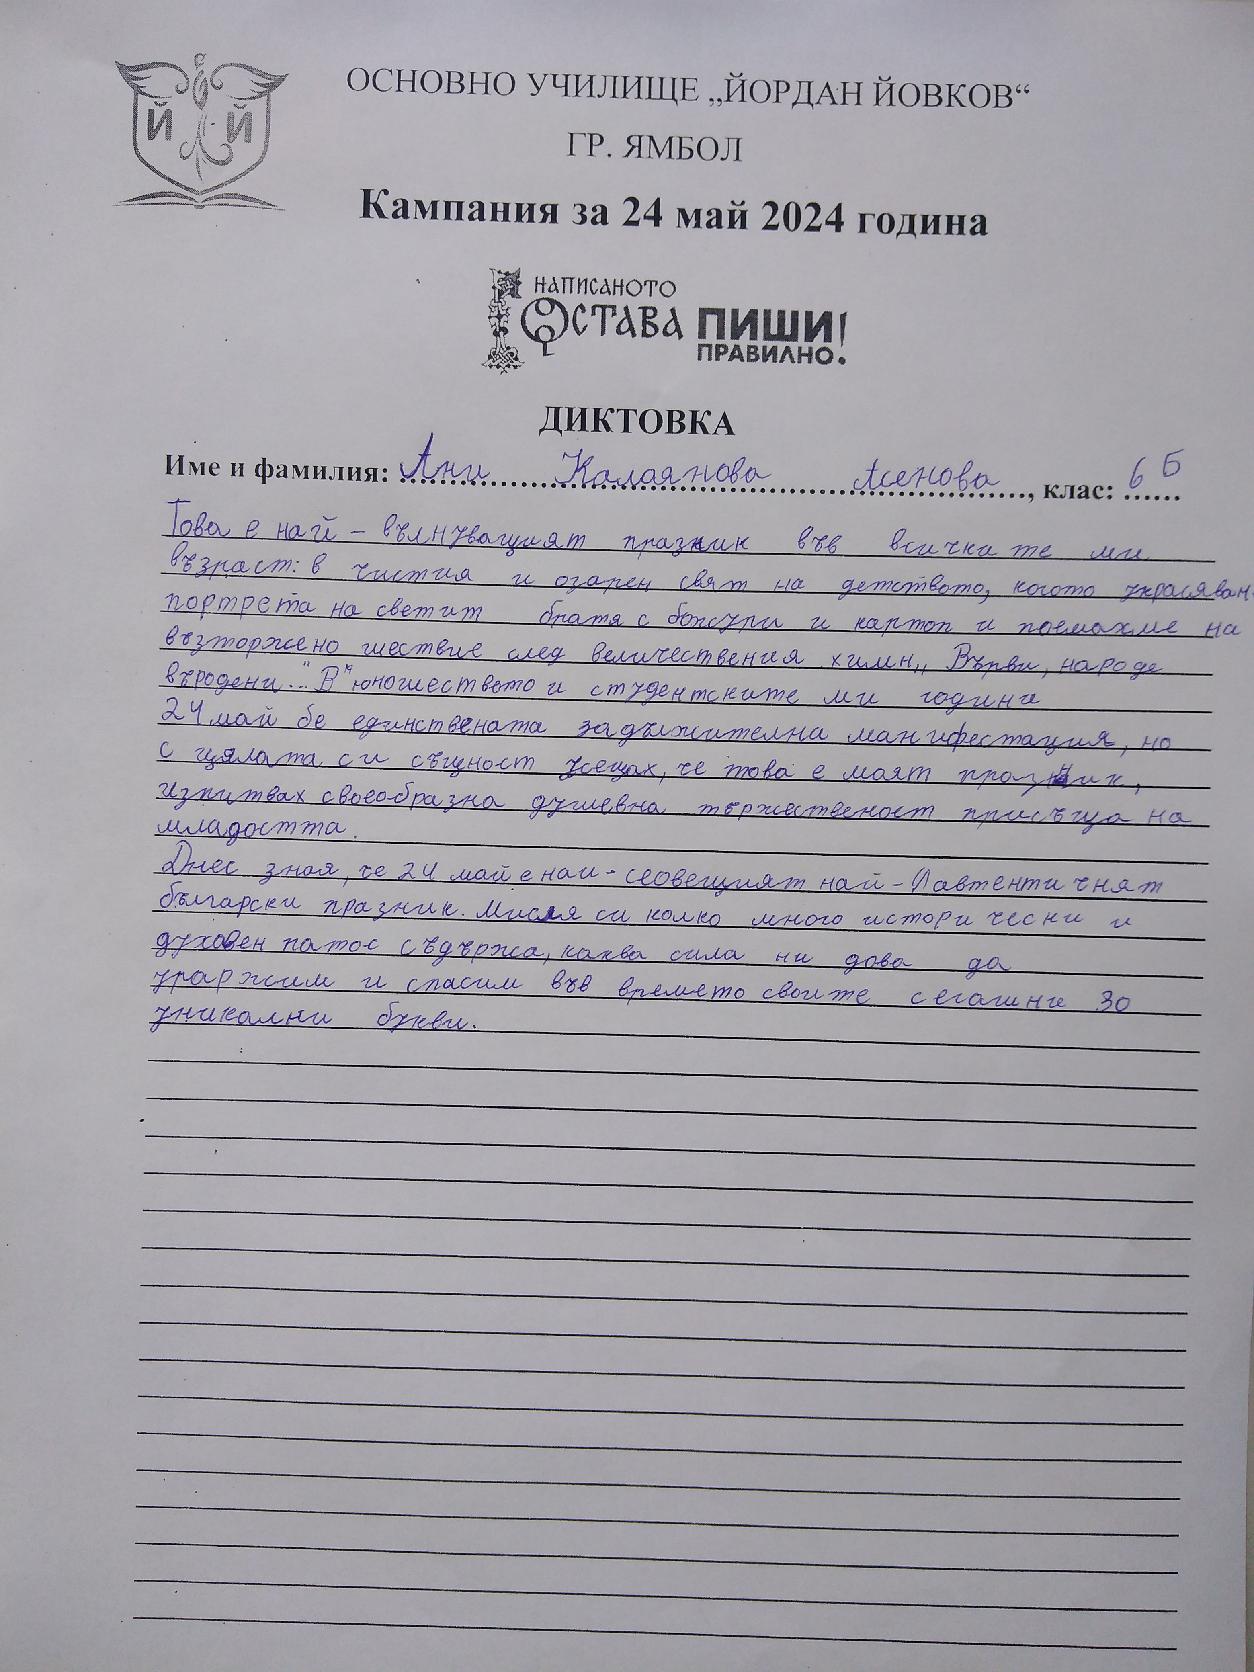 Й Й
ОСНОВНО УЧИЛИЩЕ „ЙОРДАН ЙОВКОВ“
ГР. ЯМБОЛ
Кампания за 24 май 2024 година
НАПИСАНОТО
ОСТАВА ПИШИ
ПРАВИЛНО!
ДИКТОВКА
Име и фамилия: Ани Калаянова Асенова, клас: 6 б
Това е най – вълнуващият празник във всичките ми
възраст: в чистия и озарен свят на детството, когото украсяван
портрета на светит братя с божури и картон и поемахме на
възторжено шествие след величествения химн „Върви, народе
въродени..." В юношеството и студентските ми години
24 май бе единствената задължителна манифестация, но
с цялата си същност усещах, че това е моят празник,
изпитвах своеобразна душевна тържественост присъща на
младостта.
Днес зная, че 24 май е наи - сеовещият най – автентичнят
български празник. Мисля си колко много исторически и
духовен патос съдържа, каква сила ни дова да
удържим и спасим във времето своите сегашни 30
уникални букви.